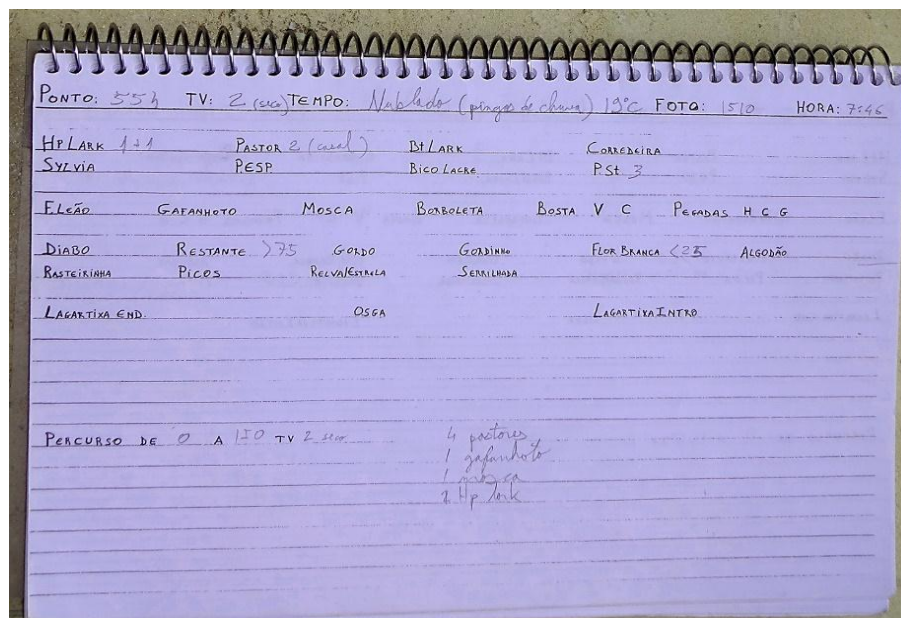 PONTO: 55h TV: 2 (seco) TEMPO: Nublado (pingos de chuva) 19°C FOTO: 1510 HORA: 7:46
HP LARK 1+1 PASTOR 2 (casal) Bt LARK CORREDEIRA
SYLVIA P.ESP. BICO LACRE P.St 3
F.LEÃO GAFANHOTO MOSCA BORBOLETA BOSTA V C PEGADAS H C G
DIABO RESTANTE >75 GORDO GORDINHO FLOR BRANCA <25 ALGODÃO
RASTEIRINHA PICOS RELVA/ESTRELA SERRILHADA
LAGARTIXA END. OSGA LAGARTIXA INTRO
PERCURSO DE 0 A 150 TV 2 seco 4 pastores
1 gafanhoto
1 mosca
2 Hp lark